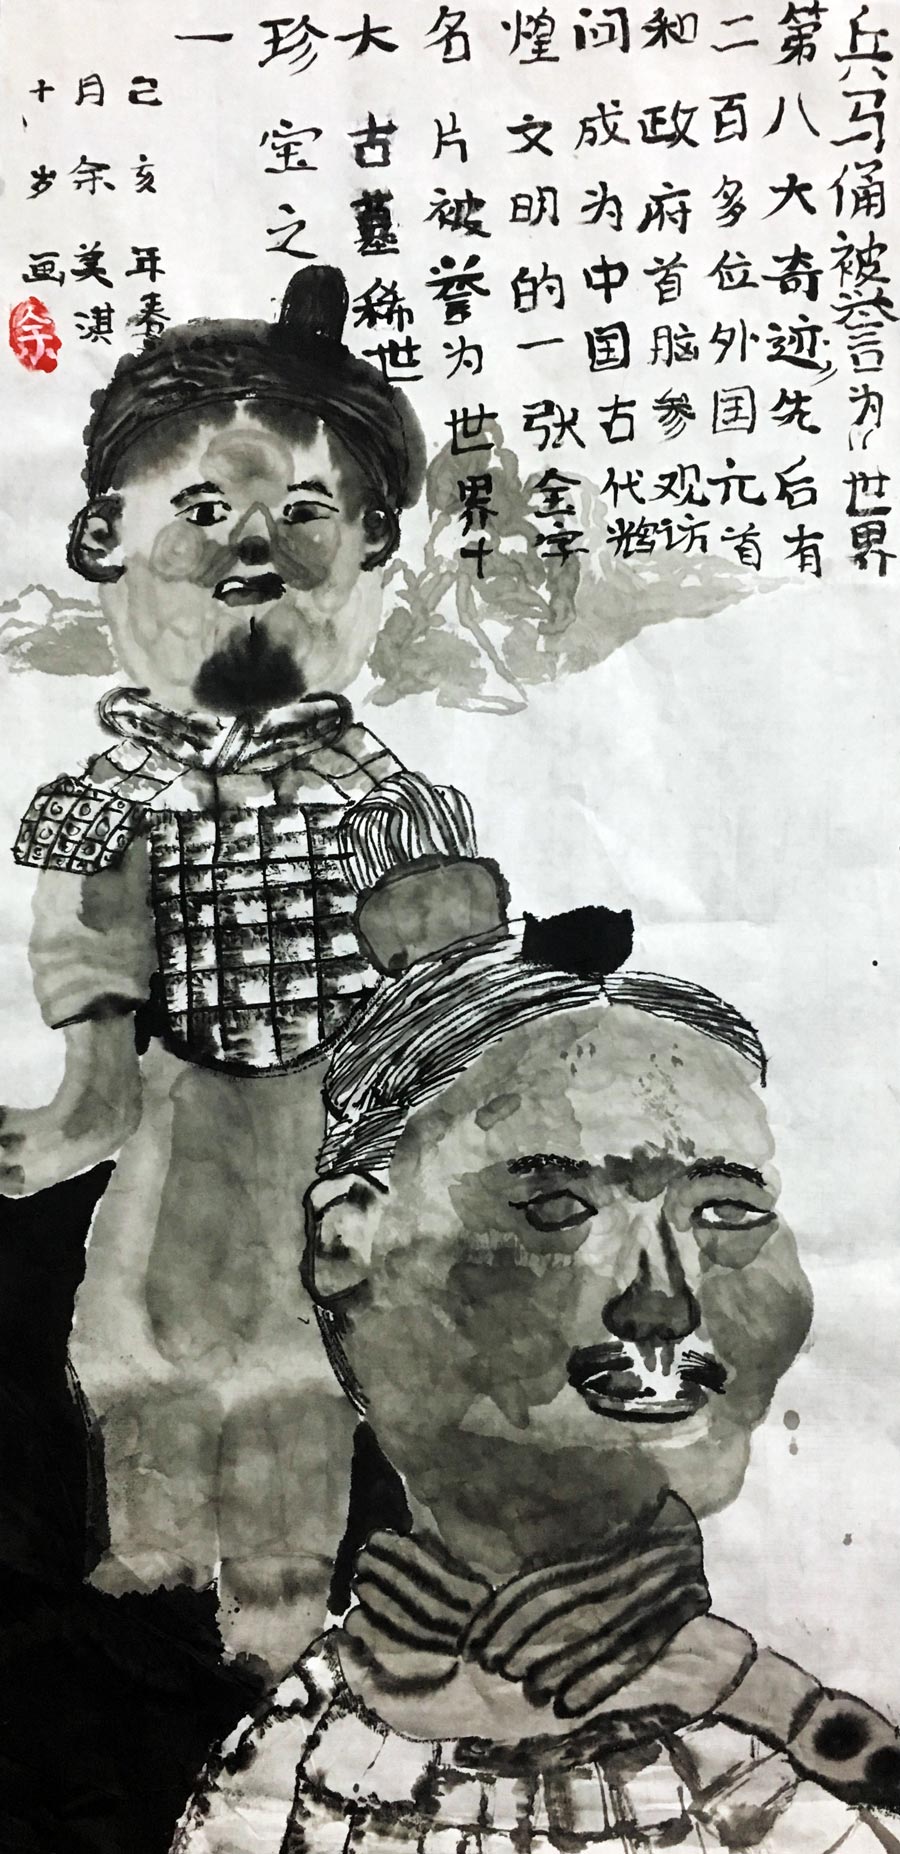 兵马俑被誉为世界
第八大奇迹,先后有
二百多位外国元首
和政府首脑参观访
问成为中国古代辉
煌文明的一张金字
名片被誉为世界十
大古墓稀世
珍宝之
一
己亥年春
月余美淇
十岁画
余